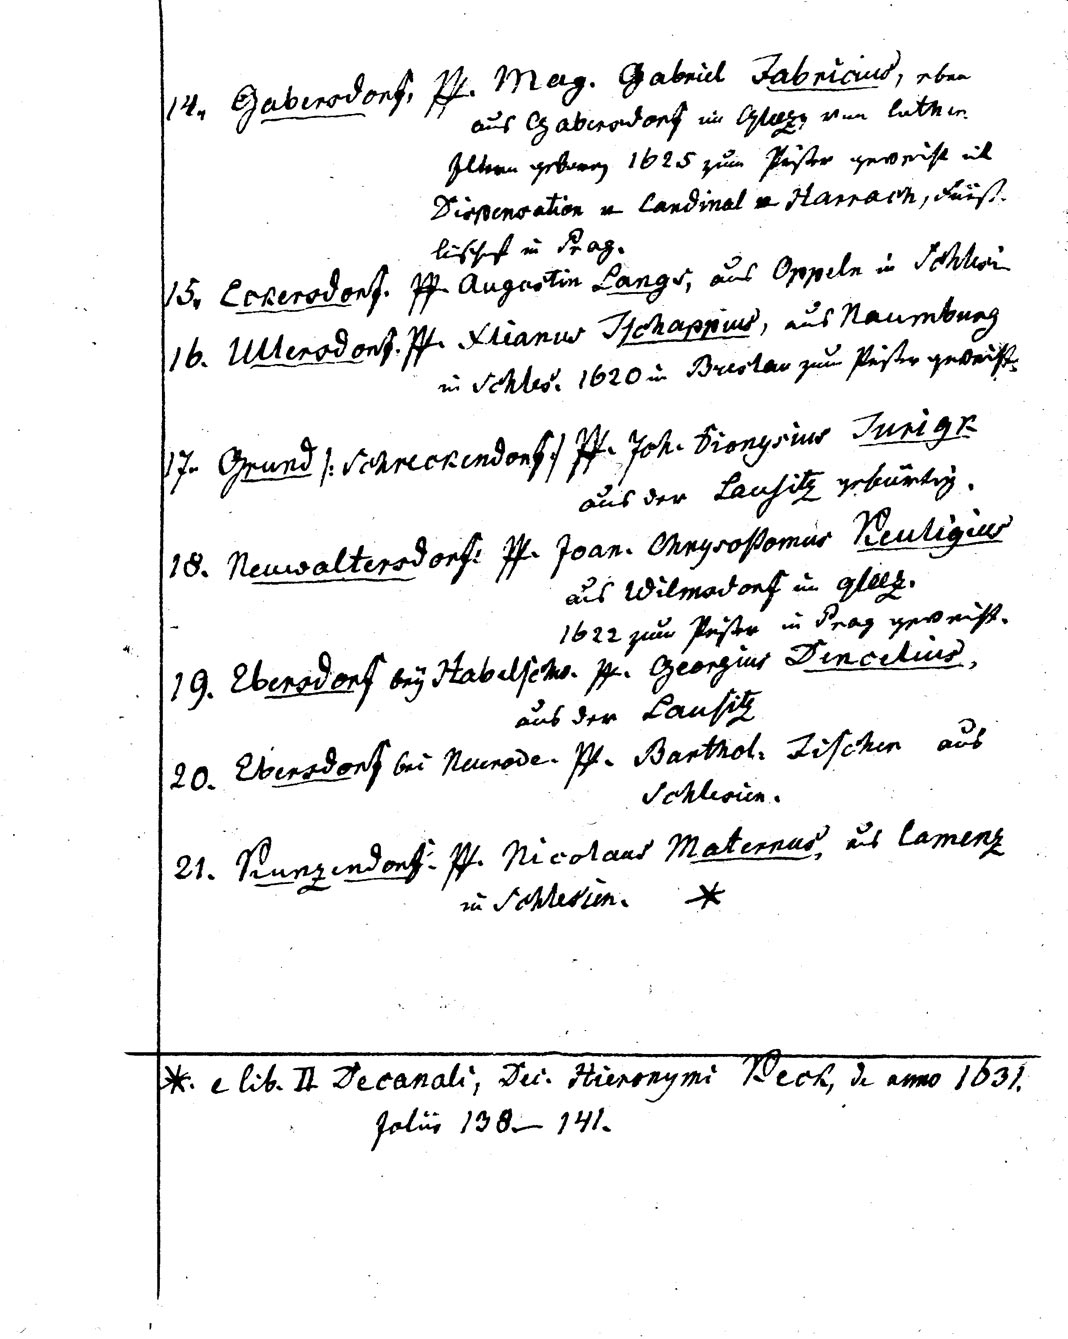 14. Gabersdorf. Pf. Mag. Gabriel Fabricius, eben
aus Gabersdorf im Glatz, von luther.
Eltern geboren 1625 zum Priester geweiht mit
Dispensation v. Cardinal v. Harrach, Fürst-
bischof in Prag.
15. Eckersdorf. Pf. Augustin Lange, aus Oppeln in Schlesien
16. Ullersdorf. Pf. Xtianus Tschappius, aus Naumburg
in Schles. 1620 in Breslau zum Priester geweiht.
17. Grund /: Schreckendorf :/ Pf. Joh. Dionysius Jurigk
aus der Lausitz gebürtig.
18. Neuwaltersdorf: Pf. Joan. Chrysostomus Keuligius
aus Wilmsdorf im Glatz.
1622 zum Priester in Prag geweiht.
19. Ebersdorf bey Habelschw. Pf. Georgius Dencelius,
aus der Lausitz
20. Ebersdorf bei Neurode. Pf. Barthol. Fischer aus
Schlesien.
21. Kunzendorf: Pf. Nicolaus Maternus, aus Camenz
in Schlesien. *
*. e lib. II Decanali, Dec. Hieronymi Keck, de anno 1631.
foliis 138 — 141.